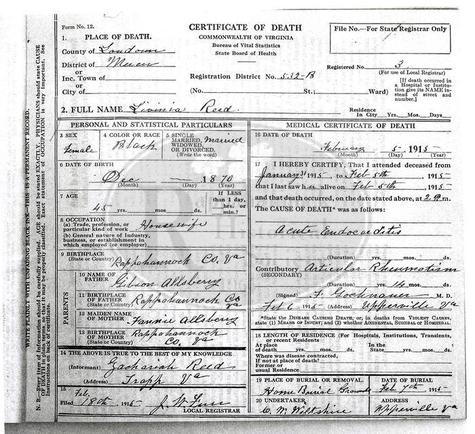 Form No. 12.
CERTIFICATE OF DEATH
COMMONWEALTH OF VIRGINIA
Bureau of Vital Statistics
State Board of Health
File No.—For State Registrar Only
1. PLACE OF DEATH.
County of Loudoun
District of Mercer
or
Inc. Town of
or
City of
Registration District No. 532-B
(No. St.; Ward)
Registered No. 3
(For use of Local Registrar)
[If death occurred in a Hospital or Institution give its NAME instead of street and number.]
2. FULL NAME Reed
Residence
In City Yrs. Mos. Days
PERSONAL AND STATISTICAL PARTICULARS
3 SEX
Female
4 COLOR OR RACE
Black
5 SINGLE, MARRIED, WIDOWED, OR DIVORCED
(Write the word)
Married
6 DATE OF BIRTH
Dec 1870
7 AGE
45 yrs. mos. ds.
IF LESS than 1 day, hrs. or min.?
8 OCCUPATION
(a) Trade, profession, or particular kind of work Housewife
(b) General nature of Industry, business, or establishment in which employed (or employer)
9 BIRTHPLACE
(State or Country) Rappahannock Co. Va
PARENTS
10 NAME OF FATHER
Gibson
11 BIRTHPLACE OF FATHER
(State or Country) Rappahannock Co Va
12 MAIDEN NAME OF MOTHER
Fannie
13 BIRTHPLACE OF MOTHER
(State or Country) Rappahannock Co. Va
14 THE ABOVE IS TRUE TO THE BEST OF MY KNOWLEDGE
(Informant) Zachariah Reed
(Address) Trapp Va
15
Filed Feb. 18th 1915 J. W. Furr
LOCAL REGISTRAR
MEDICAL CERTIFICATE OF DEATH
16 DATE OF DEATH
February 5 - 1915
17 I HEREBY CERTIFY, That I attended deceased from
January 31st 1915 to Feb 5th 1915
that I last saw her alive on Feb 5th 1915
and that death occurred, on the date stated above, at 2 m.
The CAUSE OF DEATH was as follows:
Acute Endocarditis
(Duration) yrs. mos. ds.
Contributory Articular Rheumatism
(SECONDARY)
(Duration) yrs. mos. 14 ds.
(Signed) F. Gochnauer M. D.
Feb 6 1915 (Address) Upperville Va
State the Disease Causing Death, or, in deaths from Violent Causes, state (1) Means of Injury; and (2) whether Accidental, Suicidal, or Homicidal.
18 LENGTH OF RESIDENCE (For Hospitals, Institutions, Transients, or recent Residents
At place of death yrs. mos. ds. In the State yrs. mos. ds.
Where was disease contracted, if not at place of death?
Former or usual Residence
19 PLACE OF BURIAL OR REMOVAL
Home Burial Ground
DATE OF BURIAL
Feb 7th 1915
20 UNDERTAKER
C. W. Wiltshire
ADDRESS
Upperville Va